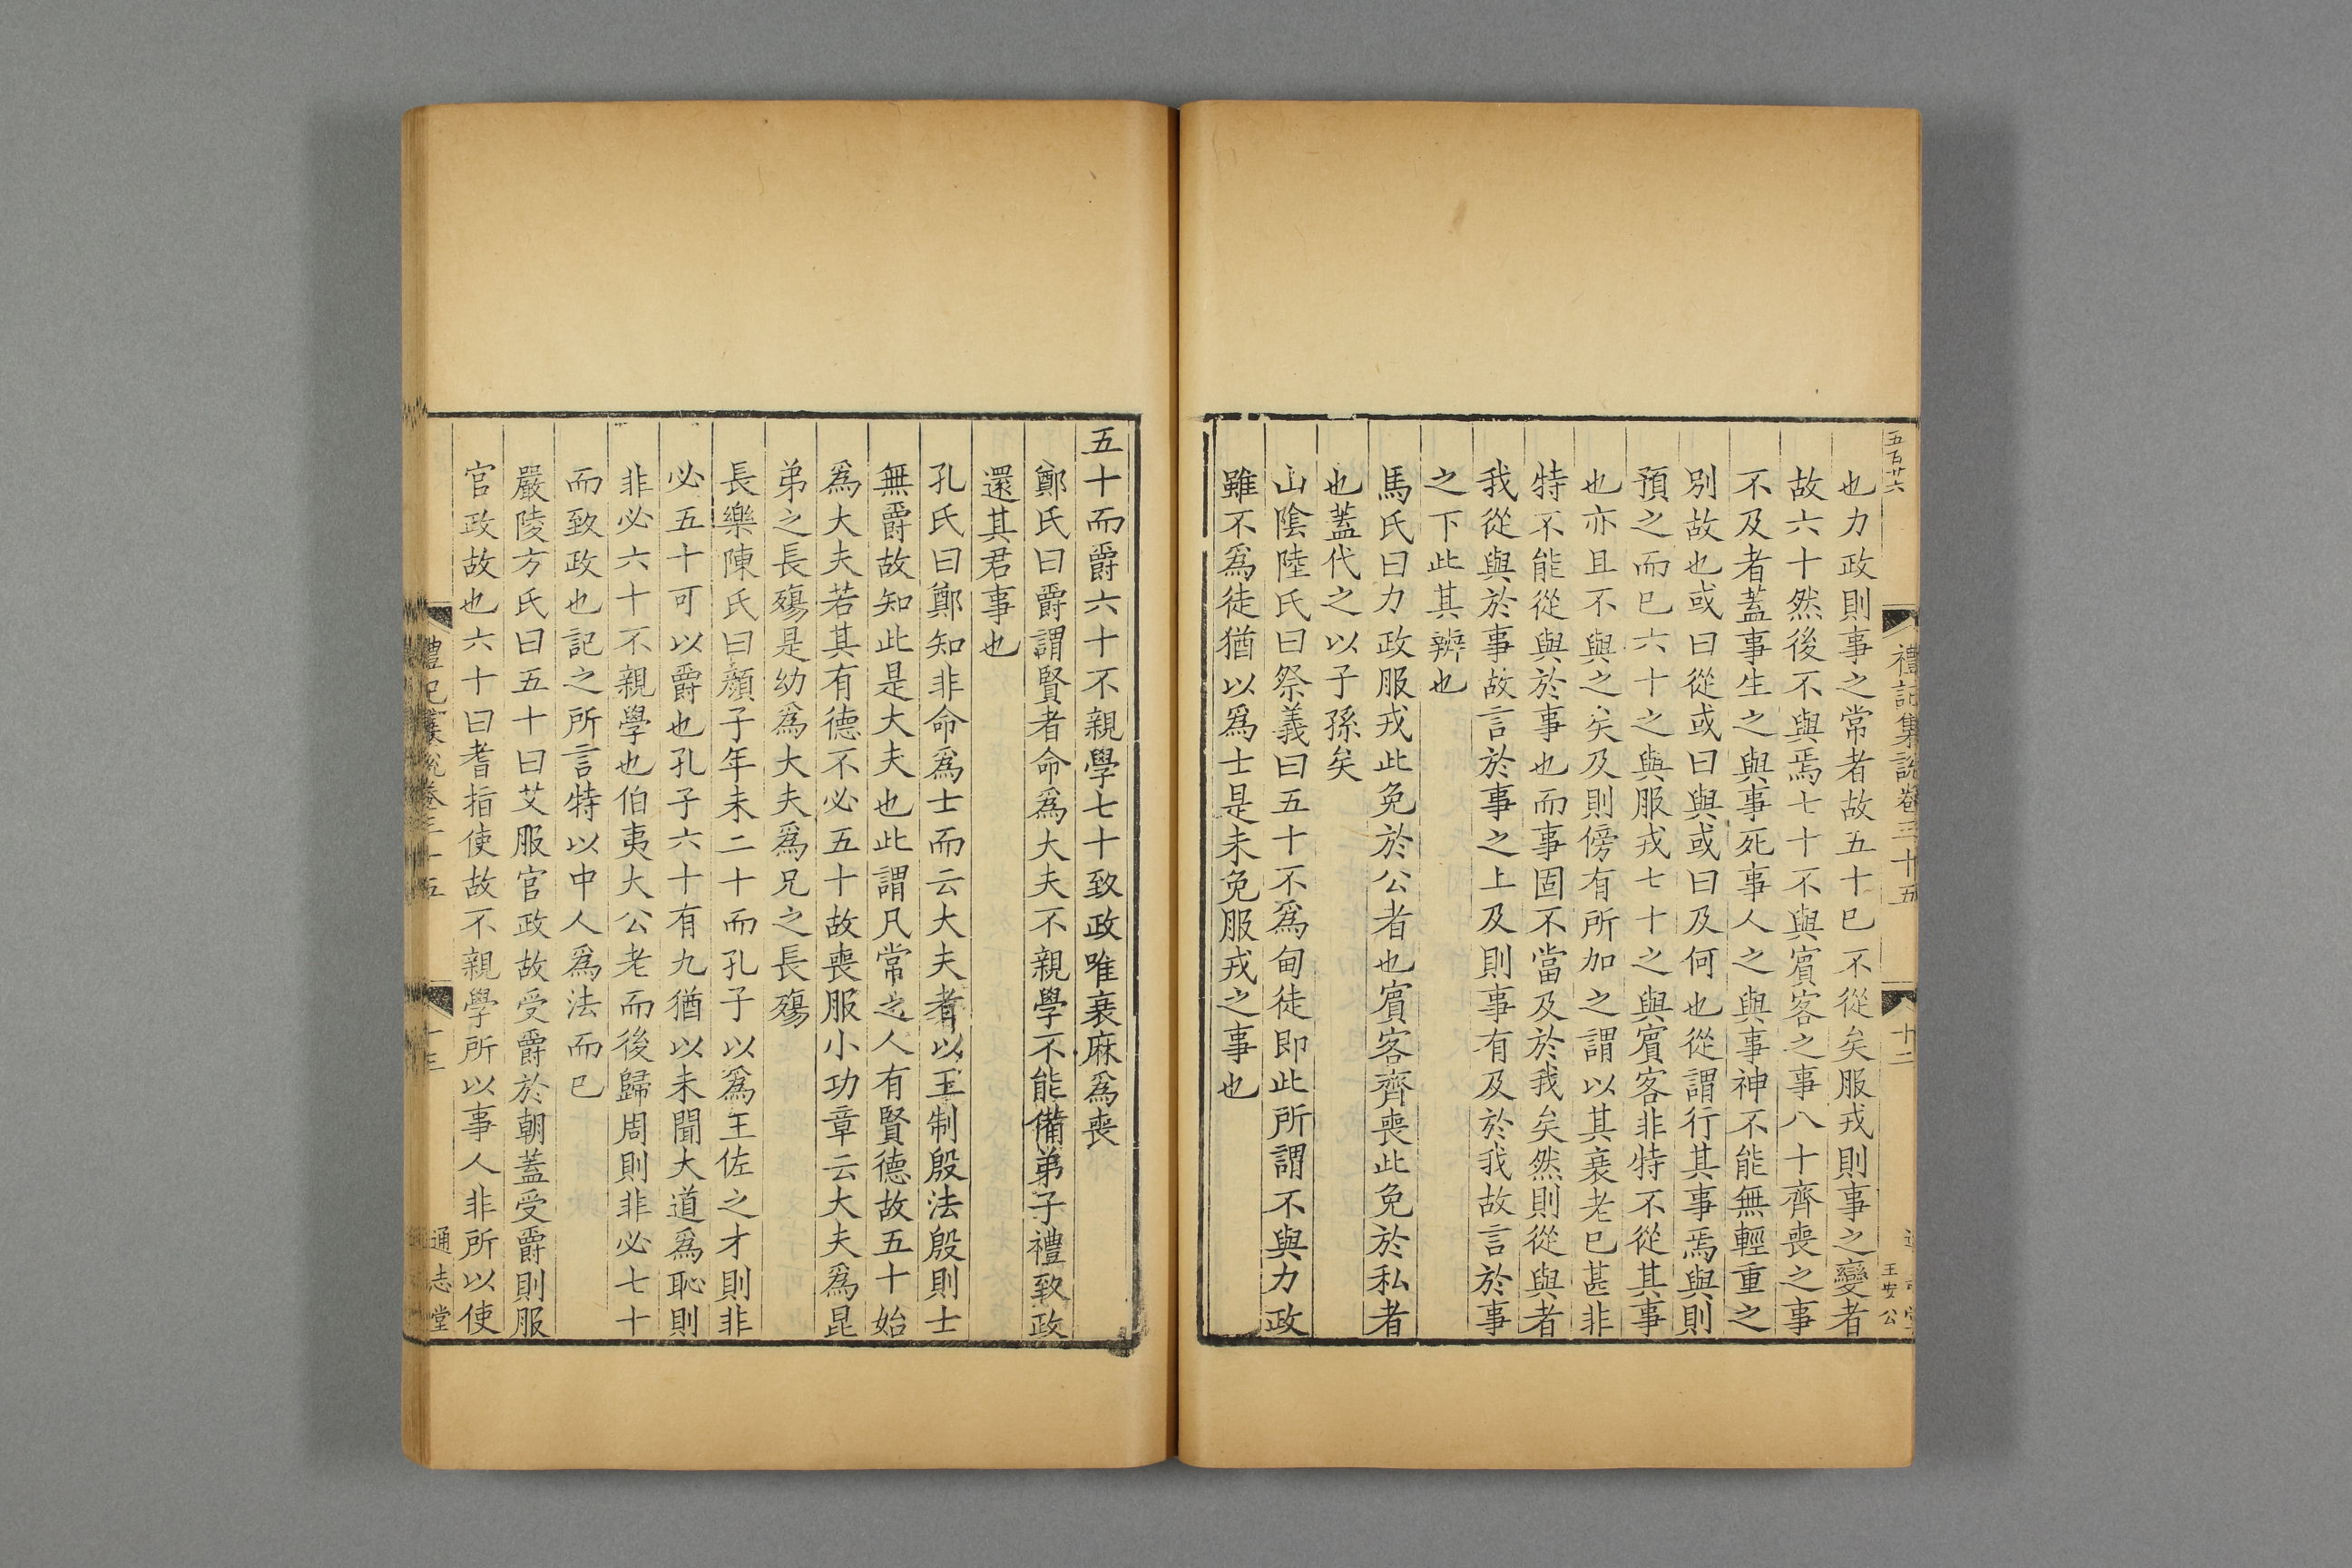 五百廿六
禮記集說卷三十五
十二
王安公
也力政則事之常者故五十巳不從矣服戎則事之變者
故六十然後不與焉七十不與賔客之事八十齊喪之事
不及者蓋事生之與事死事人之與事神不能無輕重之
別故也或曰從或曰與或曰及何也從謂行其事焉與則
預之而巳六十之與服戎七十之與賔客非特不從其事
也亦且不與之矣及則傍有所加之謂以其衰老巳甚非
特不能從與於事也而事固不當及於我矣然則從與者
我從與於事故言於事之上及則事有及於我故言於事
之下此其辨也
馬氏曰力政服戎此免於公者也賔客齊喪此免於私者
也蓋代之以子孫矣
山陰陸氏曰祭義曰五十不爲甸徒即此所謂不與力政
雖不爲徒猶以爲士是未免服戎之事也
五十而爵六十不親學七十致政唯衰麻爲喪
鄭氏曰爵謂賢者命爲大夫不親學不能備弟子禮致政
還其君事也
孔氏曰鄭知非命爲士而云大夫者以王制殷法殷則士
無爵故知此是大夫也此謂凡常之人有賢德故五十始
爲大夫若其有德不必五十故喪服小功章云大夫爲昆
弟之長殤是幼爲大夫爲兄之長殤
長樂陳氏曰顏子年未二十而孔子以爲王佐之才則非
必五十可以爵也孔子六十有九猶以未聞大道爲恥則
非必六十不親學也伯夷大公老而後歸周則非必七十
而致政也記之所言特以中人爲法而巳
嚴陵方氏曰五十曰艾服官政故受爵於朝蓋受爵則服
官政故也六十曰耆指使故不親學所以事人非所以使
禮記集說卷三十五
十三
通志堂